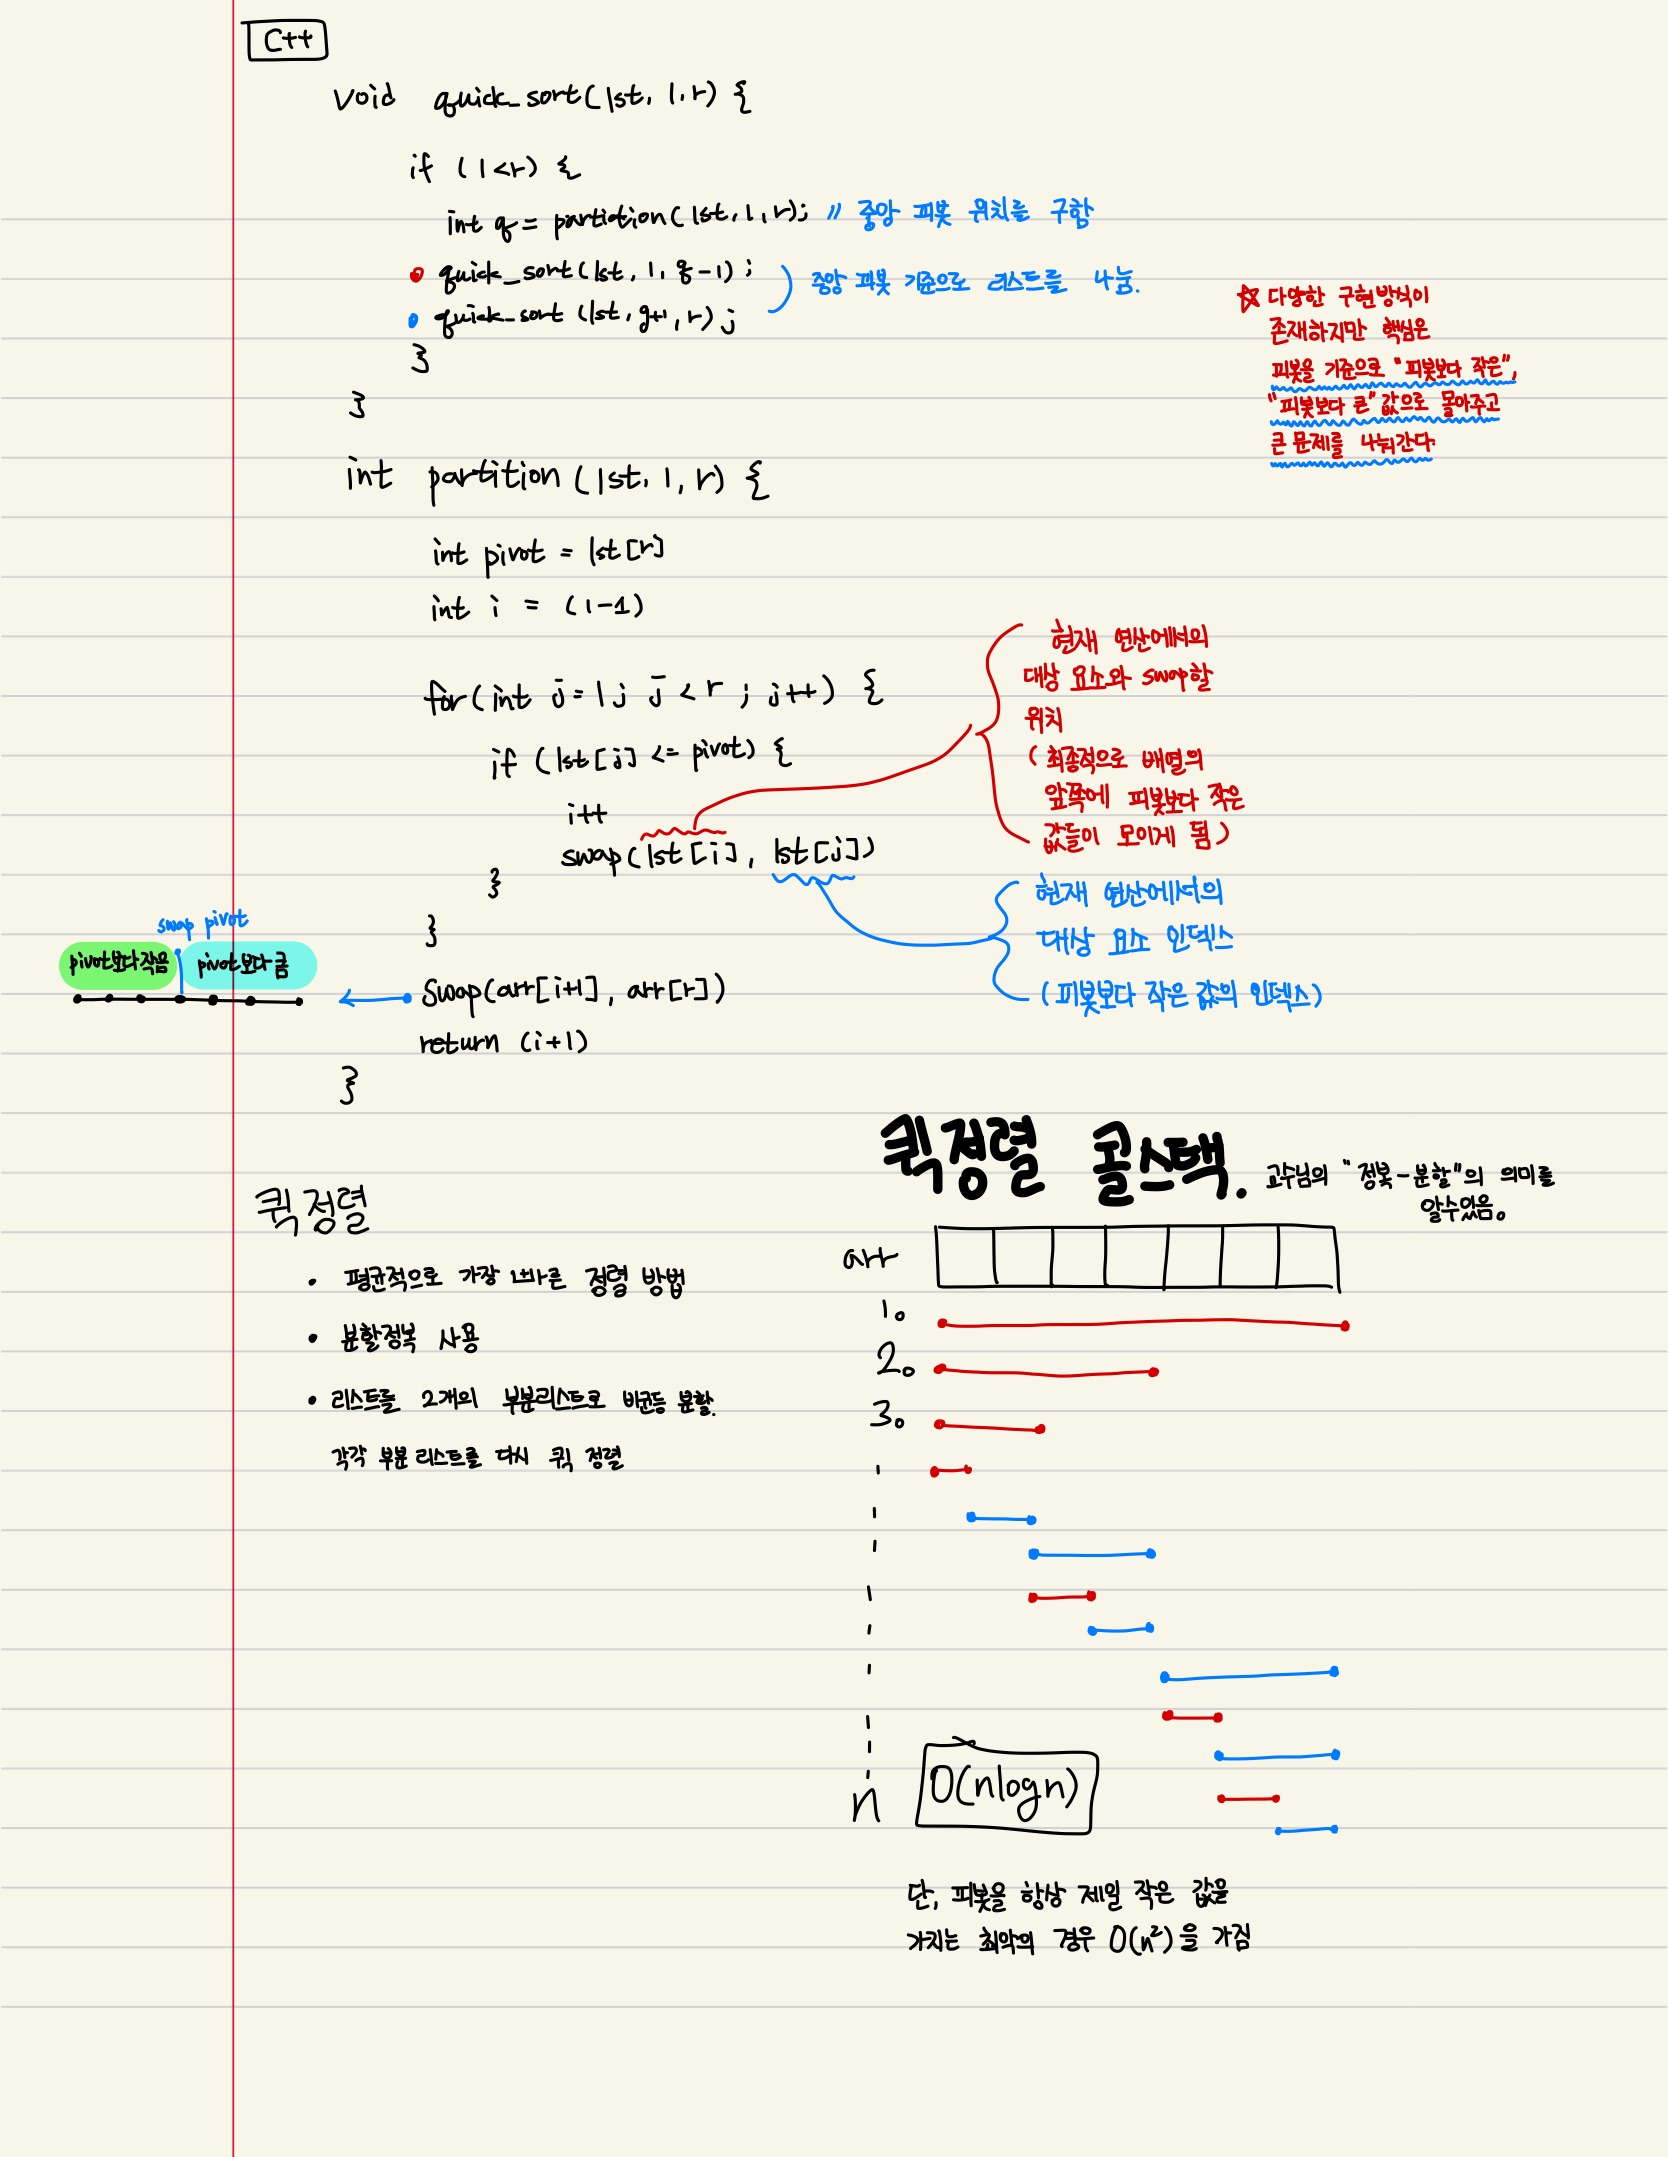 C++
void quick_sort(lst, l, r) {
if (l<r) {
int q = partiotion(lst, l, r); // 중앙 피봇 위치를 구함
quick_sort(lst, l, q-1);
quick_sort (lst, q+1, r);
중앙 피봇 기준으로 리스트를 나눔.
}
}
☆ 다양한 구현방식이
존재하지만 핵심은
피봇을 기준으로 "피봇보다 작은",
"피봇보다 큰" 값으로 몰아주고
큰 문제를 나눠간다.
int partition (lst, l, r) {
int pivot = lst[r]
int i = (l-1)
for(int j=l; j<r; j++) {
if (lst[j] <= pivot) {
i++
swap(lst[i], lst[j])
}
}
현재 연산에서의
대상 요소와 swap할
위치
(최종적으로 배열의
앞쪽에 피봇보다 작은
값들이 모이게 됨)
현재 연산에서의
대상 요소 인덱스
(피봇보다 작은 값의 인덱스)
swap pivot
pivot보다작음 pivot보다 큼
Swap(arr[i+1], arr[r])
return (i+1)
}
퀵정렬
• 평균적으로 가장 빠른 정렬 방법
• 분할정복 사용
• 리스트를 2개의 부분리스트로 비균등 분할.
각각 부분 리스트를 다시 퀵 정렬
퀵정렬 콜스택. 교수님의 "정복-분할"의 의미를
알수있음.
arr
1.
2.
3.
n
O(nlogn)
단, 피봇을 항상 제일 작은 값을
가지는 최악의 경우 O(n²)을 가짐